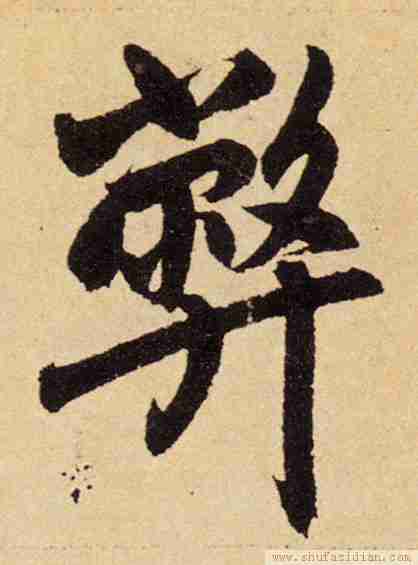 弊
www.shufazidian.com